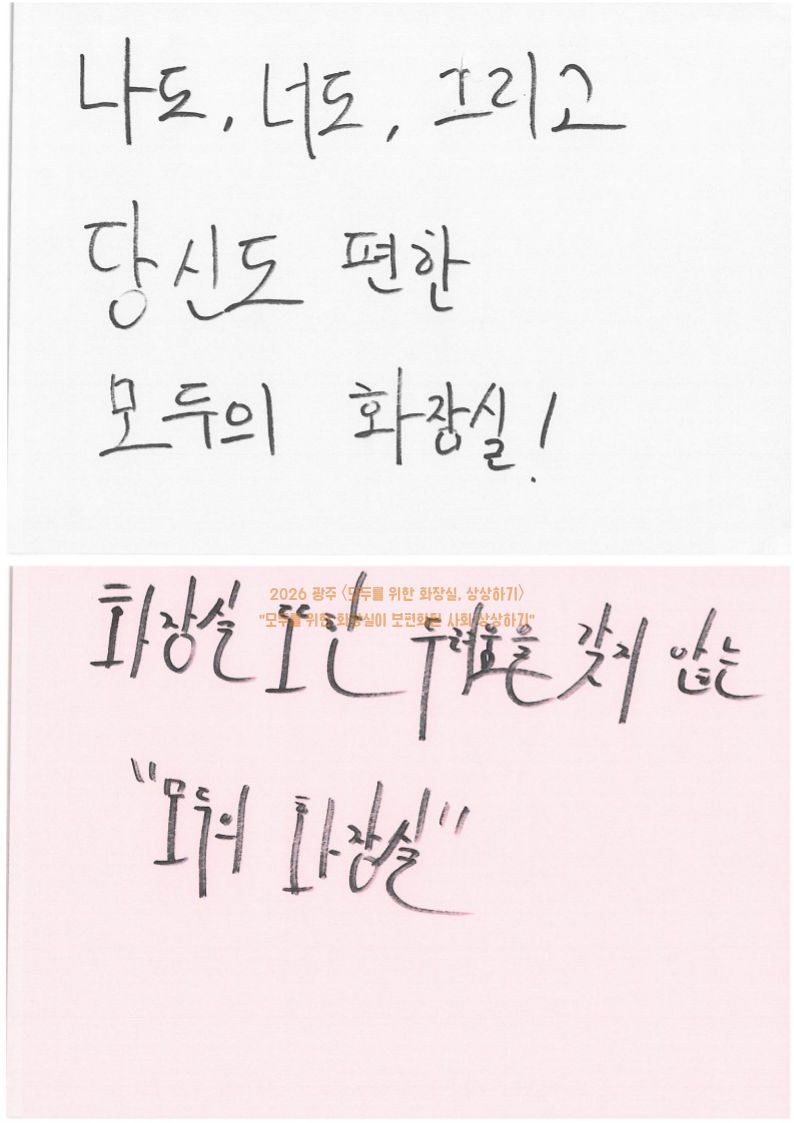 나도, 너도, 그리고
당신도 편한
모두의 화장실!
2026 광주 <모두를 위한 화장실, 상상하기>
"모두를 위한 화장실이 보편화된 사회 상상하기"
화장실 또한 두려움을 갖지 않는
"모두의 화장실"